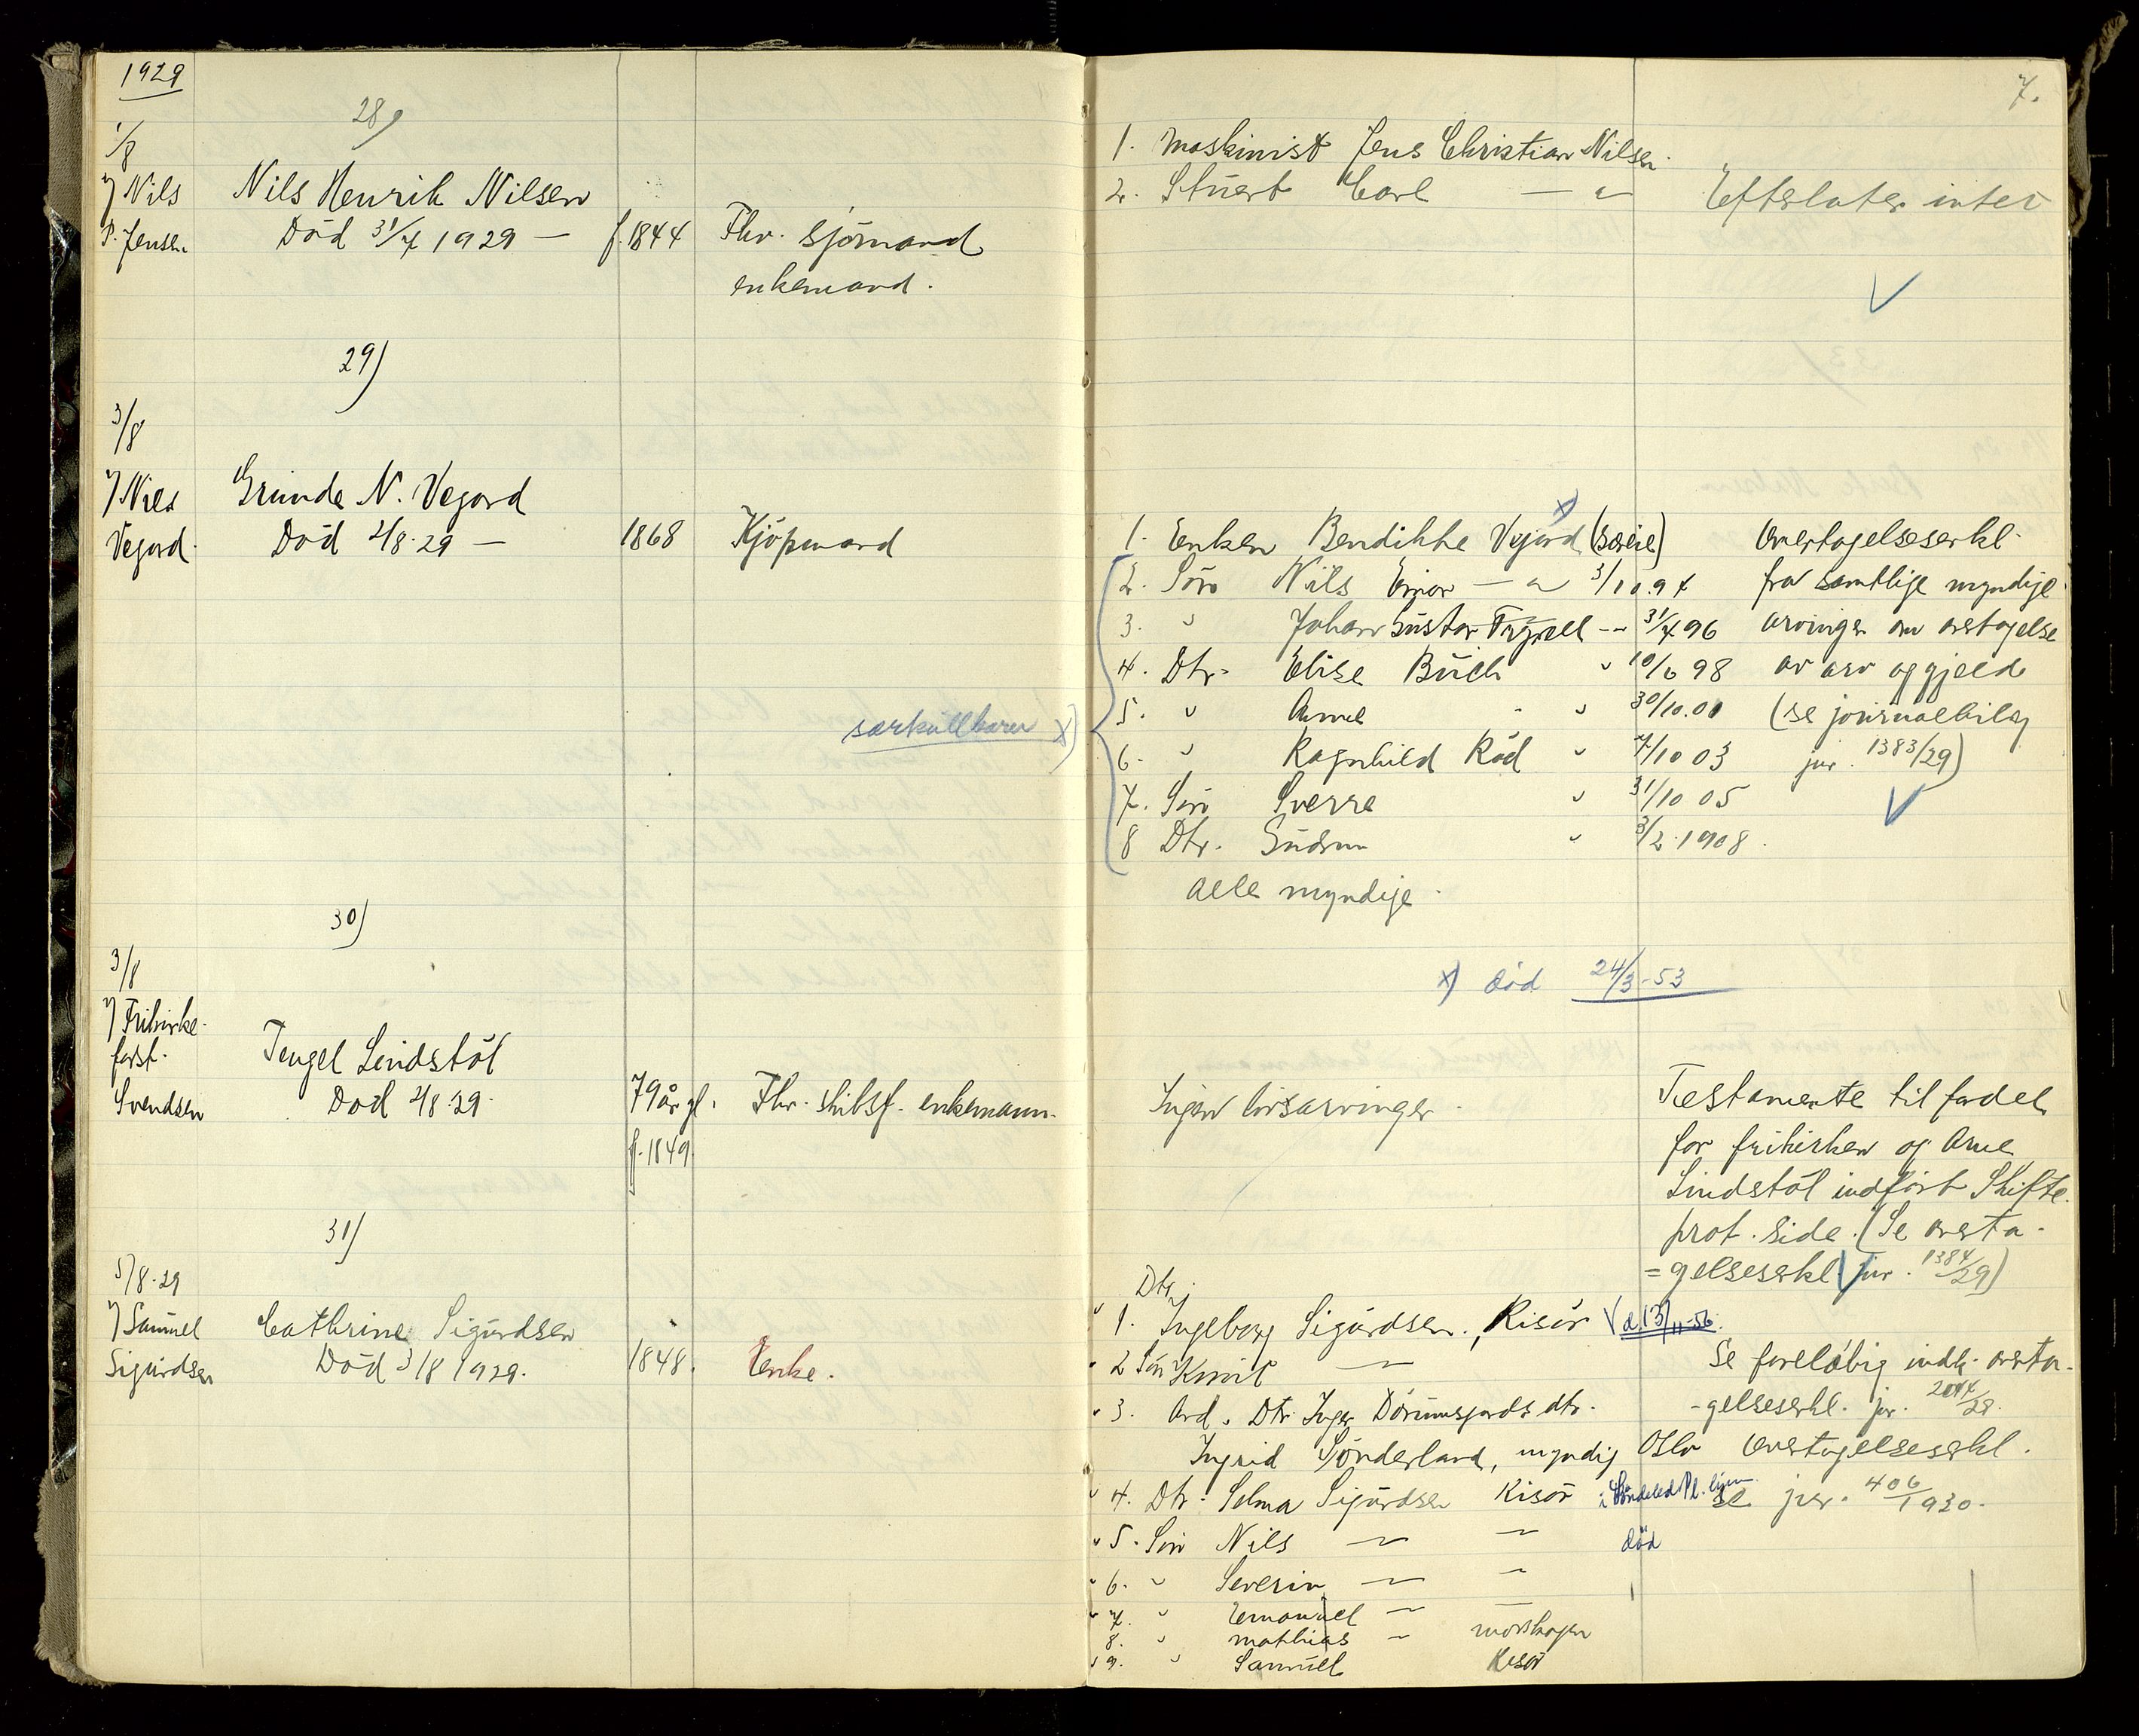 1929
7.
28)
1/8
v/ Nils
P. Jensen
Nils Henrik Nilsen
Död 31/7 1929 —
f. 1844
Fhv. sjömand
enkemand.
1. Maskinist Jens Christian Nilsen.
2. Stuert Carl — " —
Efterlater intet
29)
3/8
v/ Nils
Vegard.
Grunde N. Vegard
Död 2/8 29 —
1868
Kjöpmand
særkullbarn x)
1. Enken Bendikke Vegard x) (særeie)
2. Sön Nils Einar — " 3/10.94
3. " Johan Gustav — 31/7 96
4. Dtr. Elise Buch " 10/6 98
5. " Anne " 30/10.01
6. " Ragnhild Röd " 7/10 03
7. Sön Sverre " 31/10 05
8 Dtr. Gudrun " 3/2.1908.
alle myndige.
Overtagelseserkl.
fra samtlige myndige
arvinger om overtagelse
av arv og gjeld
(se journalbilag
jnr. 1383/29)
x) död 24/3-53
30)
3/8
v/ Frikirke-
forst.
Svendsen
Tengel Lindstöl
Död 2/8.29.
79 år gl.
f. 1849.
Fhv. skibsf. enkemann.
Ingen livsarvinger.
Testamente til fordel
for frikirken og Arne
Lindstöl indfört Skifte.
prot. side. (Se overta-
=gelseserkl. jnr. 1384/29)
31)
5/8.29
v/ Samuel
Sigurdsen
Cathrine Sigurdsen
Död 3/8 1929.
1848.
Enke.
Dtr.
1. Ingeborg Sigurdsen, Risör d. 13/11-56.
2 Sön Knut —
3. Avd. Dtr. Inger dtr.
Ingrid Sönderland, myndig Oslo
4. Dtr. Selma Sigurdsen Risör i Söndeled
5. Sön Nils — " — död
6. " Severin — "
7. " Emanuel — —
8. " Mathias —
9. " Samuel Risör
Se foreløbig indb. overta-
-gelseserkl. jnr.
Overtagelseserkl.
se jnr. 406/1930.